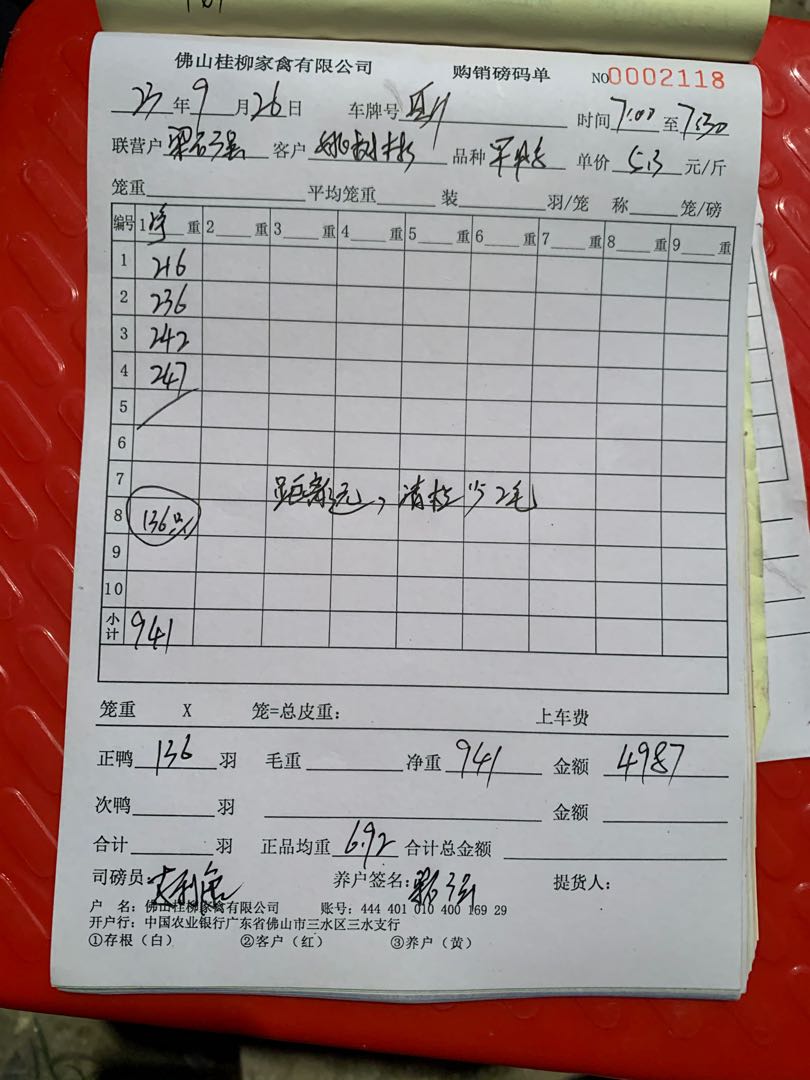 佛山桂柳家禽有限公司 购销磅码单 NO0002118
23年9月26日 车牌号 时间7:00至7:30
联营户 客户 品种 单价5.3元/斤
笼重 平均笼重 装 羽/笼 称 笼/磅
编号 1净重 2 重 3 重 4 重 5 重 6 重 7 重 8 重 9 重
1 216
2 236
3 242
4 247
5
6
7
清格 2毛
8 136只
9
10
小计 941
笼重 X 笼=总皮重: 上车费
正鸭136羽 毛重 净重941 金额4987
次鸭 羽 金额
合计 羽 正品均重6.92 合计总金额
司磅员: 养户签名: 提货人:
户 名: 佛山桂柳家禽有限公司 账号: 444 401 010 400 169 29
开户行: 中国农业银行广东省佛山市三水区三水支行
①存根（白） ②客户（红） ③养户（黄）